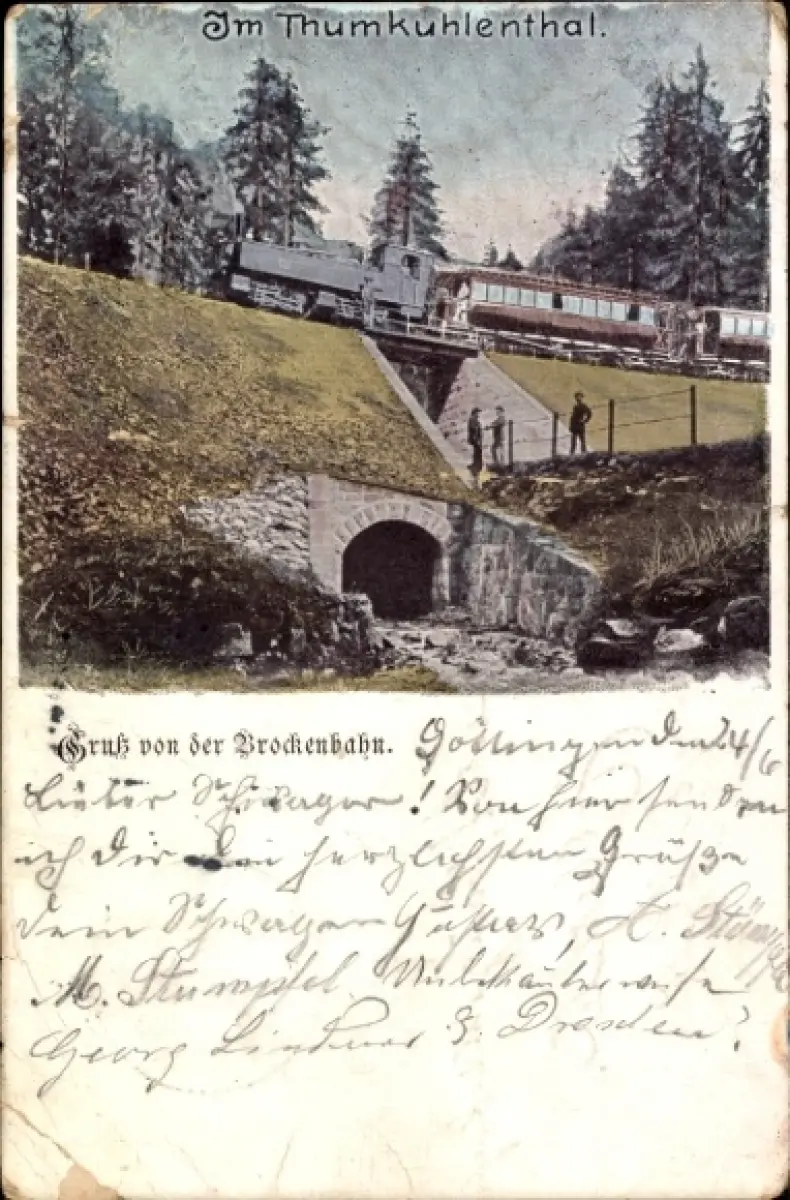 Im Thumkuhlenthal.
Gruß von der Brockenbahn. Göttingen den 24/6
Lieber Schwager! Von hier senden
ich dir die herzlichsten Grüße
dein Schwager Gustav, A.
M. Stumpfel
Georg Lindner Dresden?